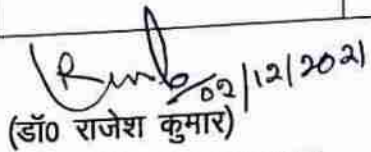 02/12/2021
(डॉ0 राजेश कुमार)